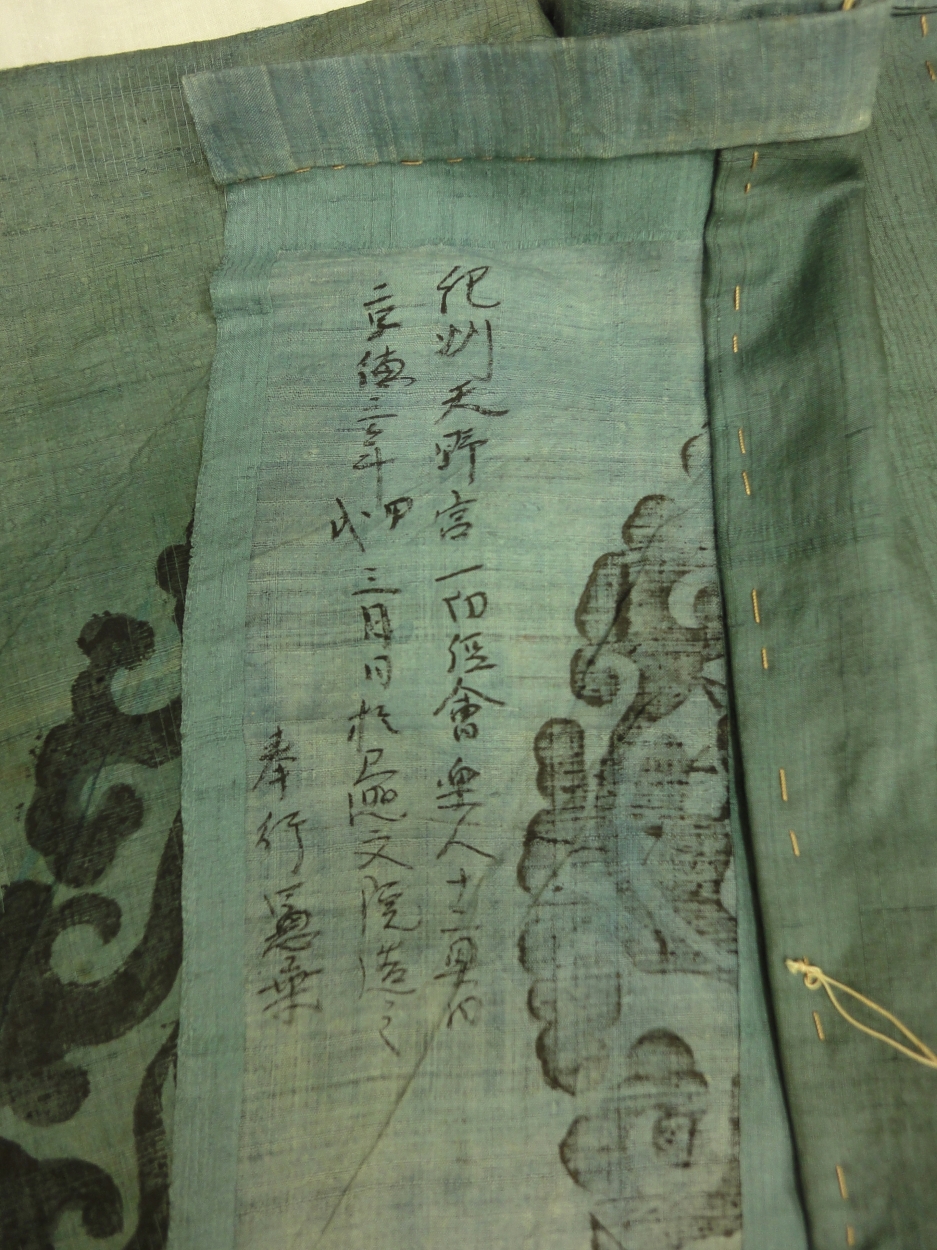 紀州天野宮一切經會樂人十二具内
享徳三年甲戌三月日於曼荼院造之
奉行